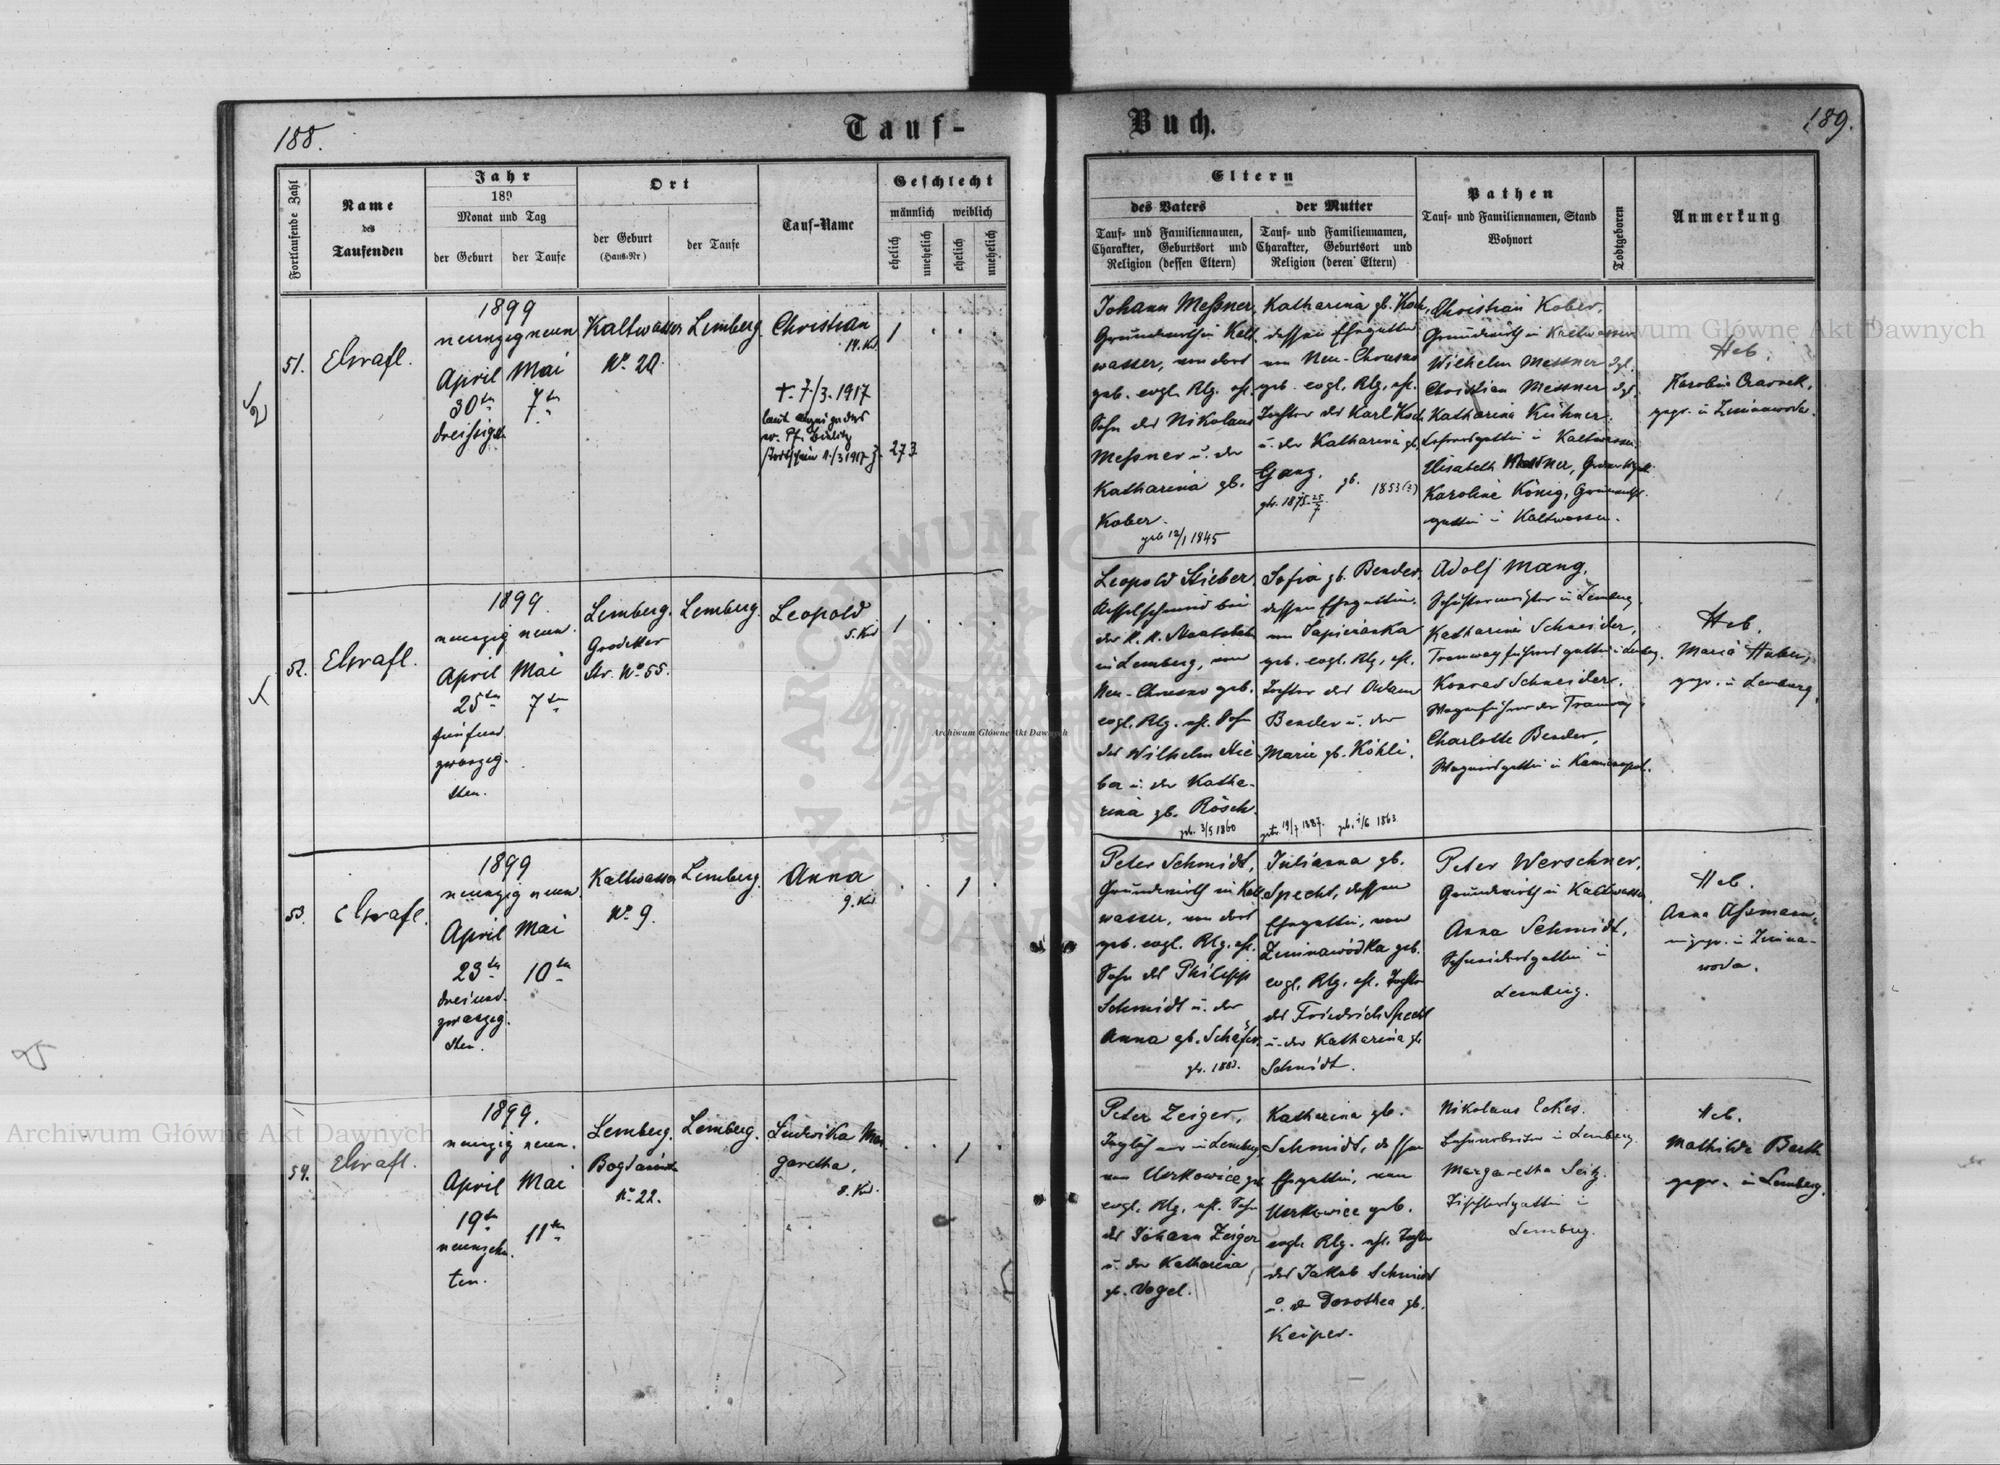 188.
Tauf-
Fortlaufende Zahl
Name
des
Taufenden
Jahr
189
Monat und Tag
der Geburt
der Taufe
Ort
der Geburt
(Haus-Nr)
der Taufe
Tauf-Name
Geschlecht
männlich
weiblich
ehelich
unehelich
ehelich
unehelich
51.
1899
neunzig neun
April
30ten
dreißigsten
Mai
7ten
Kaltwasser
No. 20
Lemberg.
Christian
14. Kd.
† 7/3. 1917
273
1
52.
1899.
neunzig neun.
April
25ten
fünfund
zwanzig-
sten.
Mai
7ten
Lemberg.
Grodeker
Str. No. 55.
Lemberg.
Leopold
5. Kd
1
53.
1899
neunzig neun.
April
23ten
dreiund-
zwanzig-
sten.
Mai
10ten
Kaltwasser
No. 9.
Lemberg.
Anna
9. Kd.
1
54.
1899.
neunzig neun.
April
19ten
neunzehn-
ten.
Mai
11ten
Lemberg.
No. 22.
Lemberg.
Ludwika Mar-
garetha.
8. Kd.
1
Buch.
189.
Eltern
des Vaters
Tauf- und Familiennamen,
Charakter, Geburtsort und
Religion (dessen Eltern)
der Mutter
Tauf- und Familiennamen,
Charakter, Geburtsort und
Religion (deren Eltern)
Pathen
Tauf- und Familiennamen, Stand
Wohnort
Todtgeboren
Anmerkung
Johann Meßner,
Grundwirth in Kalt-
wasser, von dort
geb. evgl. Rlg. ehl.
Sohn des Nikolaus
Meßner u. der
Katharina gb.
Kober.
geb 12/1 1845
Katharina gb. Koch,
dessen Ehegattin
von Neu-Chrusno
geb. evgl. Rlg. ehl.
Tochter des Karl Koch
u. der Katharina gb.
Gang.
gb. 1853 (?)
gtr. 1875 25/7
Christian Kober,
Grundwirth in Kaltwasser
Wilhelm Messner dgl.
Christian Messner dgl.
Katharina Kühner
in Kaltwasser
Elisabeth Messner,
Karoline König,
gattin in Kaltwasser.
Heb.
gepr. in Zimnawoda.
Leopold Stieber,
Kesselschmied bei
der k. k. Staatsbahn
in Lemberg, von
Neu-Chrusno geb.
evgl. Rlg. ehl. Sohn
des Wilhelm Stie-
ber u. der Katha-
rina gb. Rösch.
geb. 3/5 1860
Sofia gb. Bender,
dessen Ehegattin,
geb. evgl. Rlg. ehl.
Tochter des Adam
Bender u. der
Marie gb. Köhli.
getr. 19/7 1887.
Adolf Mang,
Schustermeister in Lemberg.
Katharina Schneider,
Tramwayführersgattin in Lemberg.
Konrad Schneider,
Wagenführer der Tramway
Charlotte Bender,
Wagnersgattin in
Heb.
Maria Huber,
gepr. in Lemberg.
Peter Schmidt,
Grundwirth in Kalt-
wasser, von dort
geb. evgl. Rlg. ehl.
Sohn des Philipp
Schmidt u. der
Anna gb. Schäfer.
Julianna gb.
Specht, dessen
Ehegattin, von
Zimnawódka geb.
evgl. Rlg. ehl. Tochter
des Friedrich Specht
u. der Katharina gb.
Schmidt.
Peter Werschner,
Grundwirth in Kaltwasser.
Anna Schmidt,
Schneidersgattin in
Lemberg.
Heb.
Anna Aßmann,
ungepr. in Zimna-
woda.
Peter Zeiger,
Taglöhner in Lemberg,
von Uszkowice geb.
evgl. Rlg. ehl. Sohn
des Johann Zeiger
u. der Katharina
gb. Vogel.
Katharina gb.
Schmidt, dessen
Ehegattin, von
Uszkowice geb.
evgl. Rlg. ehl. Tochter
des Jakob Schmidt
u. der Dorothea gb.
Keiper.
Nikolaus Eckes.
in Lemberg.
Margaretha Seitz.
Tischlersgattin in
Lemberg.
Heb.
Mathilde Barth
gepr. in Lemberg.
Archiwum Główne Akt Dawnych
Archiwum Główne Akt Dawnych
Archiwum Główne Akt Dawnych